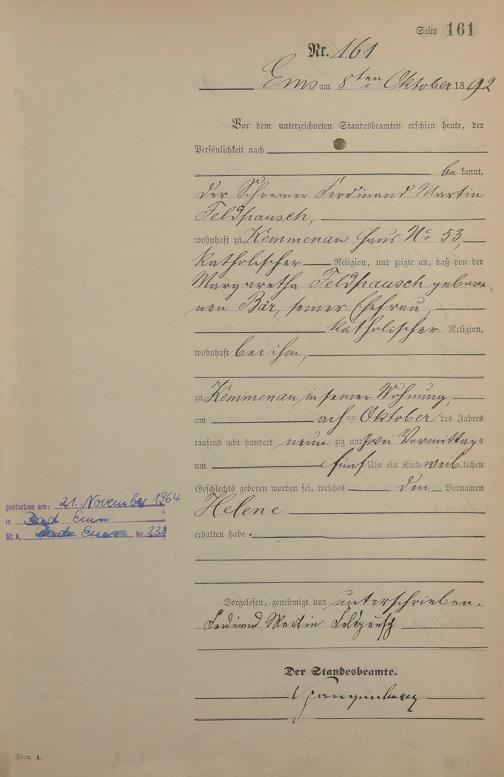 Seite 161
Nr. 161
Ems am 8ten Oktober 1892
Vor dem unterzeichneten Standesbeamten erschien heute, der
Persönlichkeit nach
be kannt,
der Schreiner Ferdinand Martin
Feldpausch,
wohnhaft zu Kemmenau Haus No 53,
katholischer Religion, und zeigte an, daß von der
Margaretha Feldpausch gebore-
nen Bär, seiner Ehefrau,
katholischer Religion,
wohnhaft bei ihm,
zu Kemmenau in seiner Wohnung,
am Oktober des Jahres
tausend acht hundert neun zig und zwei Vormittags
um fünf Uhr ein Kind weib lichen
Geschlechts geboren worden sei, welches den Vornamen
Helene
erhalten habe.
gestorben am: 21. November 1964
in Bad Ems
St.A. Bad Ems Nr.
Vorgelesen, genehmigt und unterschrieben.
Ferdinand Martin Feldpausch
Der Standesbeamte.
Form. A.